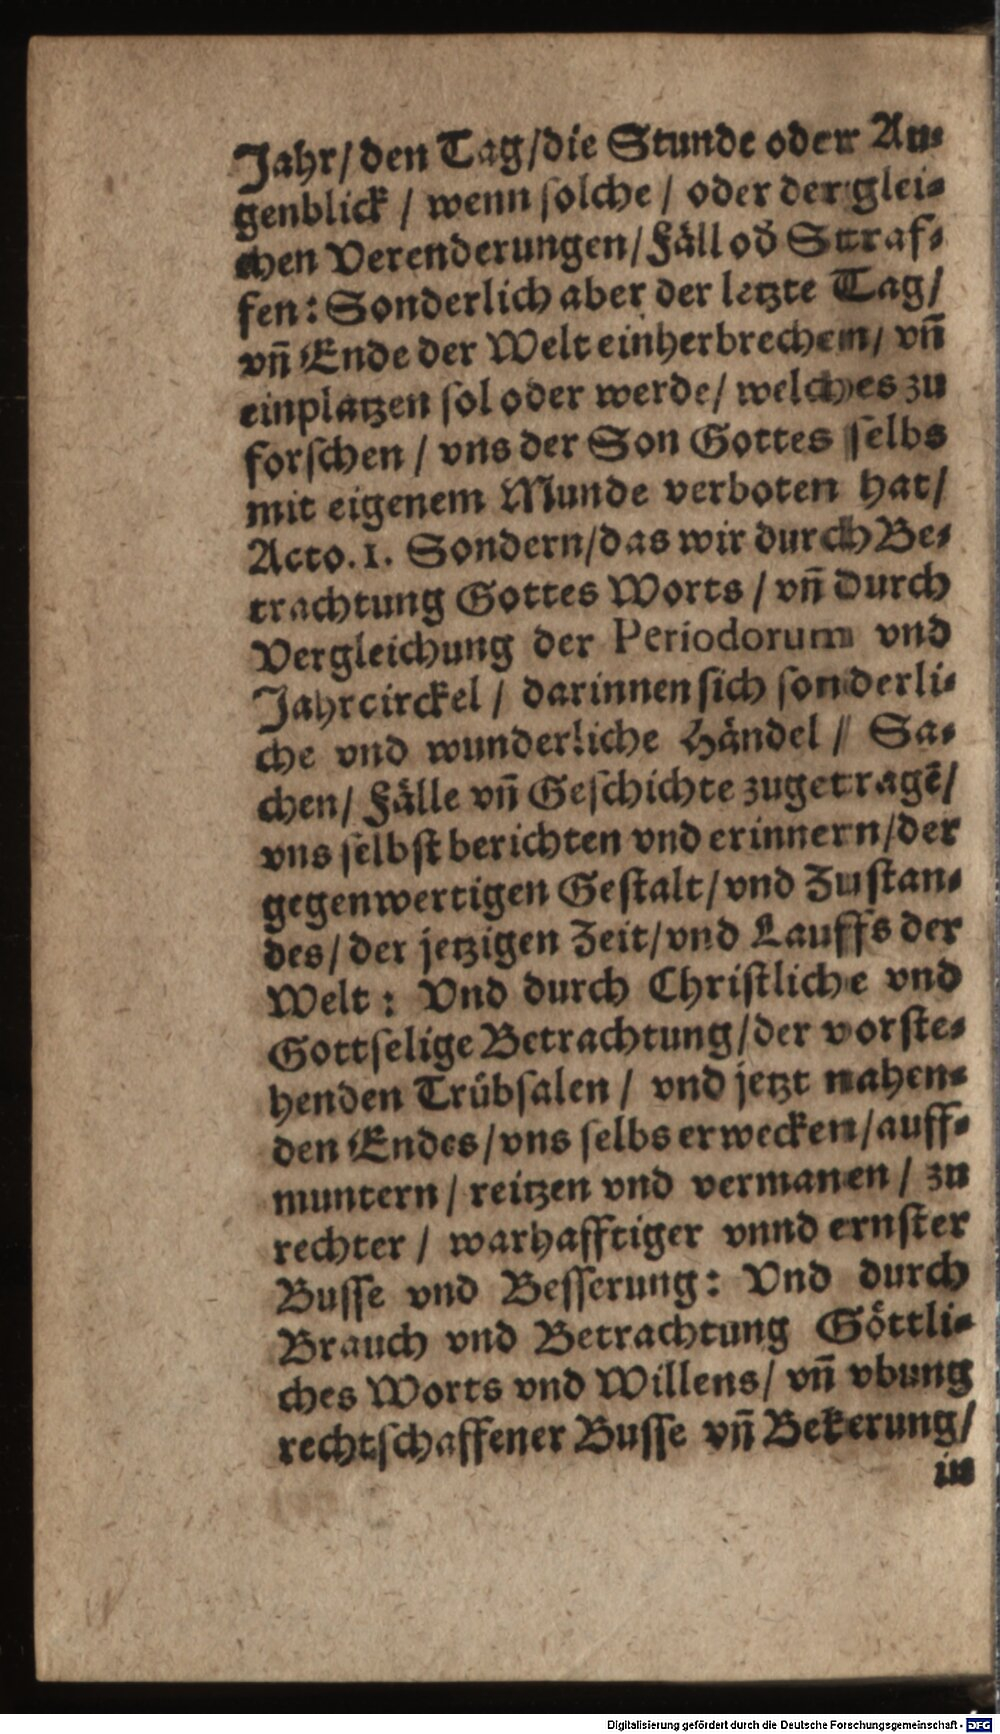 Jahr/den Tag/die Stunde oder Au⸗
genblick / wenn ſolche / oder der glei⸗
chen Verenderungen/Fäll od̃ Straf⸗
fen: Sonderlich aber der letzte Tag/
vñ Ende der Welt einherbrechen/ vñ
einplatzen ſol oder werde/ welches zu
forſchen / vns der Son Gottes ſelbs
mit eigenem Munde verboten hat/
Acto. 1. Sondern/das wir durch Be⸗
trachtung Gottes Worts / vñ durch
Vergleichung der Periodorum vnd
Jahrcirckel / darinnen ſich ſonderli⸗
che vnd wunderliche Händel / Sa⸗
chen/ Fälle vñ Geſchichte zugetragẽ/
vns ſelbſt berichten vnd erinnern/der
gegenwertigen Geſtalt/vnd Zuſtan⸗
des/ der jetzigen Zeit/vnd Lauffs der
Welt: Vnd durch Chriſtliche vnd
Gottſelige Betrachtung/der vorſte⸗
henden Trübſalen / vnd jetzt nahen⸗
den Endes/vns ſelbs erwecken/auff⸗
muntern/ reitzen vnd vermanen / zu
rechter / warhafftiger vnnd ernſter
Buſſe vnd Beſſerung: Vnd durch
Brauch vnd Betrachtung Göttli⸗
ches Worts vnd Willens/ vñ vbung
rechtſchaffener Buſſe vñ Bekerung/
in
Digitalisierung gefördert durch die Deutsche Forschungsgemeinschaft - DFG